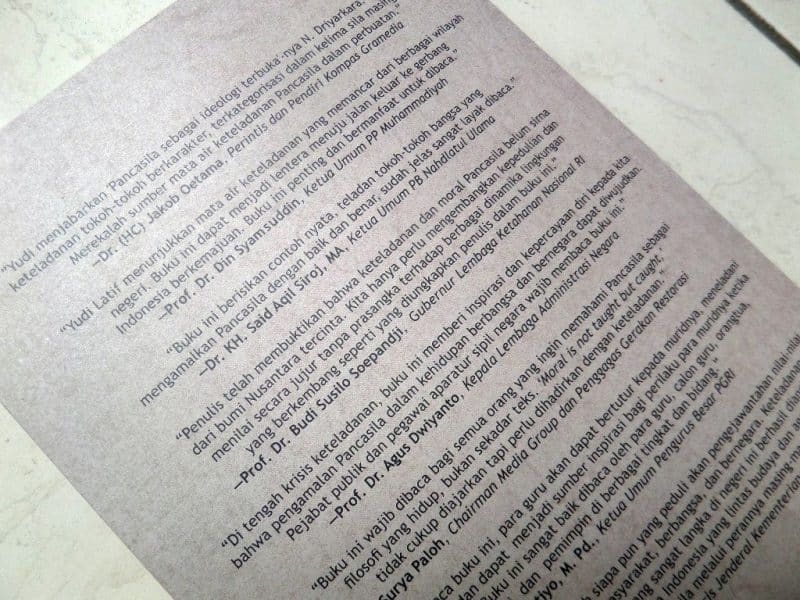 "Yudi menjabarkan 'Pancasila sebagai ideologi terbuka'-nya N. Driyarkara.
keteladanan tokoh-tokoh berkarakter, terkategorisasi dalam kelima sila masing
Merekalah sumber mata air keteladanan Pancasila dalam perbuatan."
—Dr. (HC) Jakob Oetama, Perintis dan Pendiri Kompas Gramedia
"Yudi Latif menunjukkan mata air keteladanan yang memancar dari berbagai wilayah
negeri. Buku ini dapat menjadi lentera menuju jalan keluar ke gerbang
Indonesia berkemajuan. Buku ini penting dan bermanfaat untuk dibaca."
—Prof. Dr. Din Syamsuddin, Ketua Umum PP Muhammadiyah
"Buku ini berisikan contoh nyata, teladan tokoh-tokoh bangsa yang
mengamalkan Pancasila dengan baik dan benar, sudah jelas sangat layak dibaca."
—Dr. KH. Said Aqil Siroj, MA, Ketua Umum PB Nahdlatul Ulama
"Penulis telah membuktikan bahwa keteladanan dan moral Pancasila belum sirna
dari bumi Nusantara tercinta. Kita hanya perlu mengembangkan kepedulian dan
menilai secara jujur tanpa prasangka terhadap berbagai dinamika lingkungan
yang berkembang seperti yang diungkapkan penulis dalam buku ini."
—Prof. Dr. Budi Susilo Soepandji, Gubernur Lembaga Ketahanan Nasional RI
"Di tengah krisis keteladanan, buku ini memberi inspirasi dan kepercayaan diri kepada kita
bahwa pengamalan Pancasila dalam kehidupan berbangsa dan bernegara dapat diwujudkan.
Pejabat publik dan pegawai aparatur sipil negara wajib membaca buku ini."
—Prof. Dr. Agus Dwiyanto, Kepala Lembaga Administrasi Negara
"Buku ini wajib dibaca bagi semua orang yang ingin memahami Pancasila sebagai
filosofi yang hidup, bukan sekadar teks. 'Moral is not taught but caught,'
tidak cukup diajarkan tapi perlu dihadirkan dengan keteladanan."
Surya Paloh, Chairman Media Group dan Penggagas Gerakan Restorasi
baca buku ini, para guru akan dapat bertutur kepada muridnya, meneladani
dan dapat menjadi sumber inspirasi bagi perilaku para muridnya ketika
Buku ini sangat baik dibaca oleh para guru, calon guru, orangtua,
dan pemimpin di berbagai tingkat dan bidang."
M. Pd., Ketua Umum Pengurus Besar PGRI
siapa pun yang peduli akan pengejawantahan nilai-nilai
berbangsa, dan bernegara. Keteladanan
yang sangat langka di negeri ini berhasil
Indonesia yang lintas budaya dan
melalui perannya masing-
Jenderal Kementerian